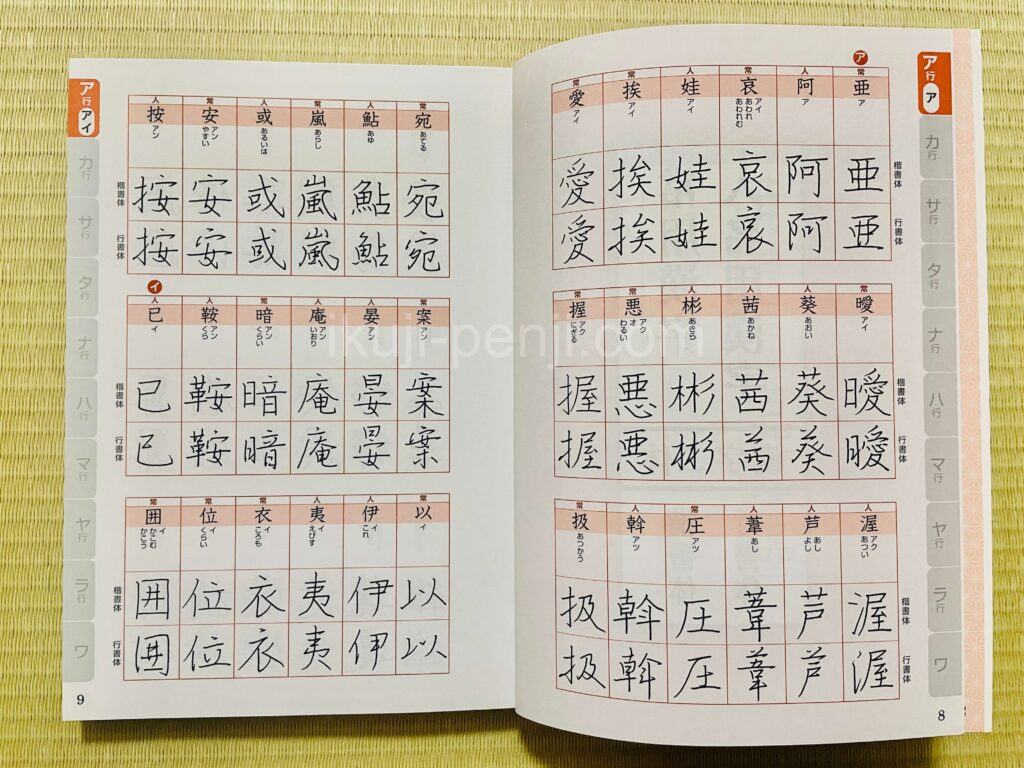 ア行 ア
カ行
サ行
タ行
ナ行
ハ行
マ行
ヤ行
ラ行
ワ
ア
楷書体
行書体
常 亜 ア 亜 亜
人 阿 ア 阿 阿
常 哀 アイ あわれ あわれむ 哀 哀
人 娃 アイ 娃 娃
常 挨 アイ 挨 挨
常 愛 アイ 愛 愛
楷書体
行書体
常 曖 アイ 曖 曖
人 葵 あおい 葵 葵
人 茜 あかね 茜 茜
人 彬 あきら 彬 彬
常 悪 アク オ わるい 悪 悪
常 握 アク にぎる 握 握
楷書体
行書体
人 渥 アク あつい 渥 渥
人 芦 あし よし 芦 芦
人 葦 あし 葦 葦
常 圧 アツ 圧 圧
人 斡 アツ 斡 斡
常 扱 あつかう 扱 扱
8
常 宛 あてる 宛 宛
人 鮎 あゆ 鮎 鮎
常 嵐 あらし 嵐 嵐
人 或 あるいは 或 或
常 安 アン やすい 安 安
人 按 アン 按 按
楷書体
行書体
常 案 アン 案 案
人 晏 アン 晏 晏
人 庵 アン いおり 庵 庵
常 暗 アン くらい 暗 暗
人 鞍 アン くら 鞍 鞍
イ
人 已 イ 已 已
楷書体
行書体
常 以 イ 以 以
人 伊 イ これ 伊 伊
人 夷 イ えびす 夷 夷
常 衣 イ ころも 衣 衣
常 位 イ くらい 位 位
常 囲 イ かこむ かこう 囲 囲
楷書体
行書体
ア行 アイ
カ行
サ行
タ行
ナ行
ハ行
マ行
ヤ行
ラ行
ワ
9
ikuji-penji.com